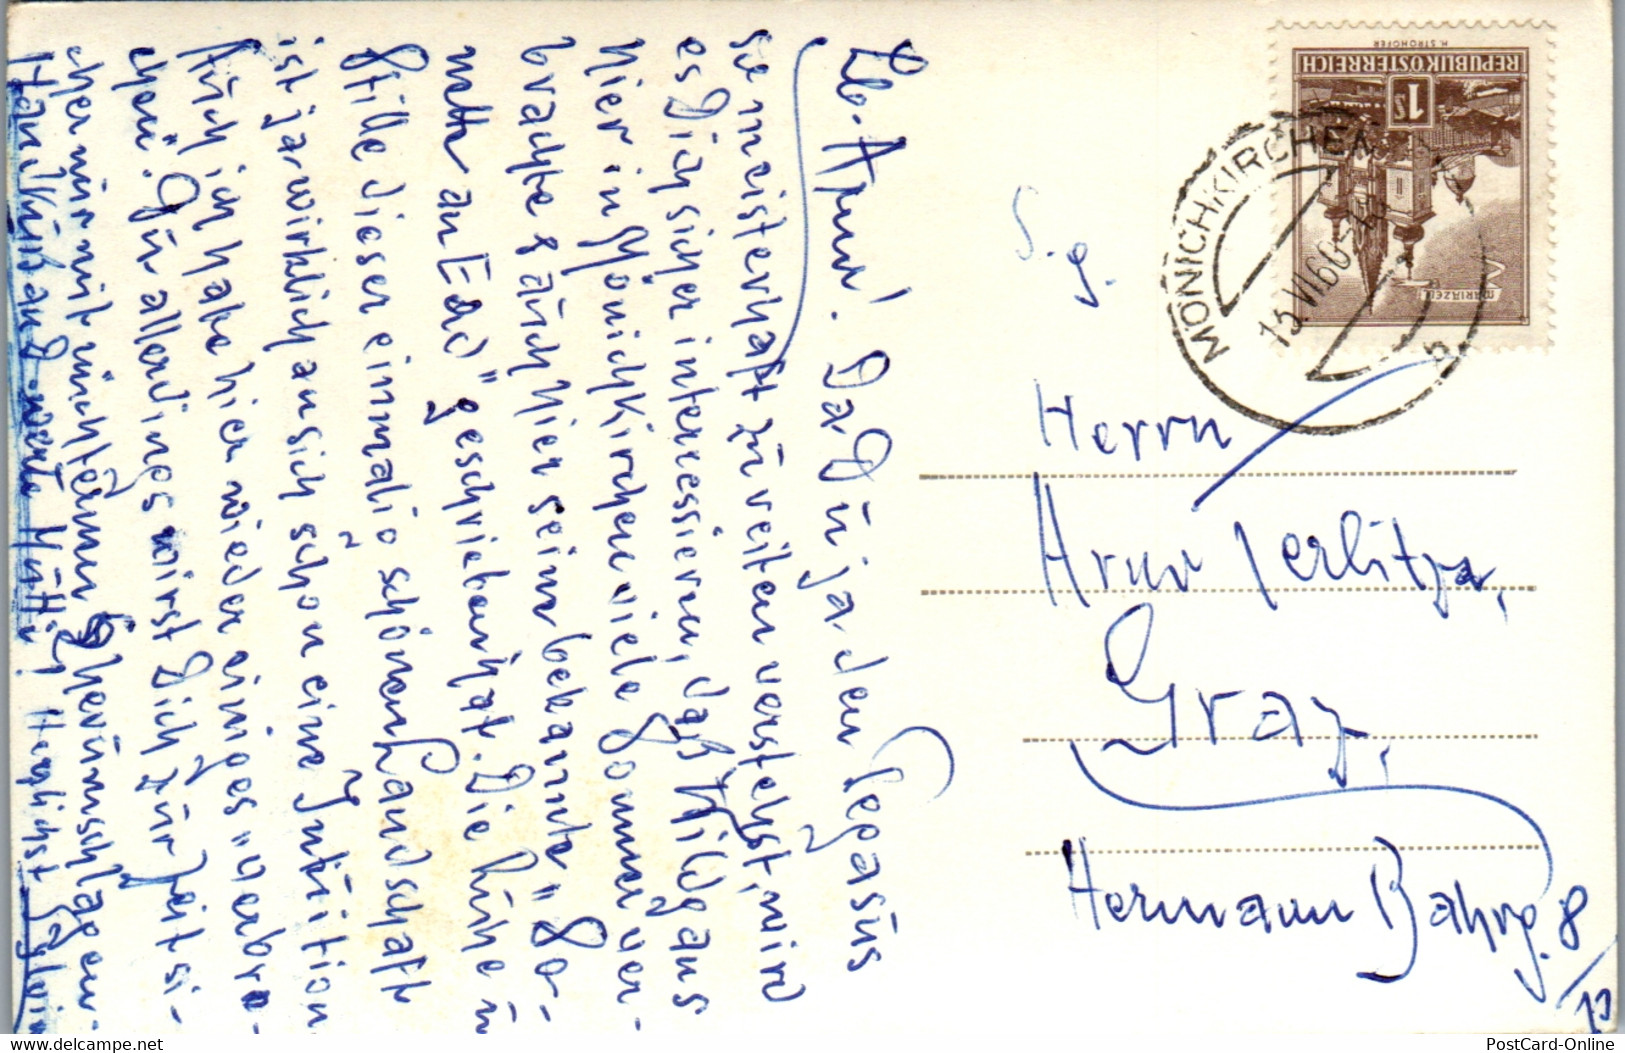 Lb. Arno! Da Du ja den Pegasus
so meisterhaft zu reiten verstehst, wird
es Dich sicher interessieren, daß Wildgans
hier in Mönichkirchen viele Sommer ver-
brachte & auch hier seine bekannte "So-
nette an Ead" geschrieben hat. Die Ruhe u
Stille dieser einmalig schönen Landschaft
ist ja wirklich an sich schon eine Intuition
Auch ich habe hier wieder einiges "verbro-
chen". Du allerdings wirst Dich zur Zeit si-
cher nur mit nüchternen herumschlagen.
Handkuß an d. werte Mutti! Herzlichst
S. g.
Herrn
Arno Jerlitza,
Graz,
Hermann Bahrg. 8
REPUBLIK ÖSTERREICH
1 S
MARIAZELL
H. STROHOFER
MÖNICHKIRCHEN
15. VI. 60
b
PostCard-Online